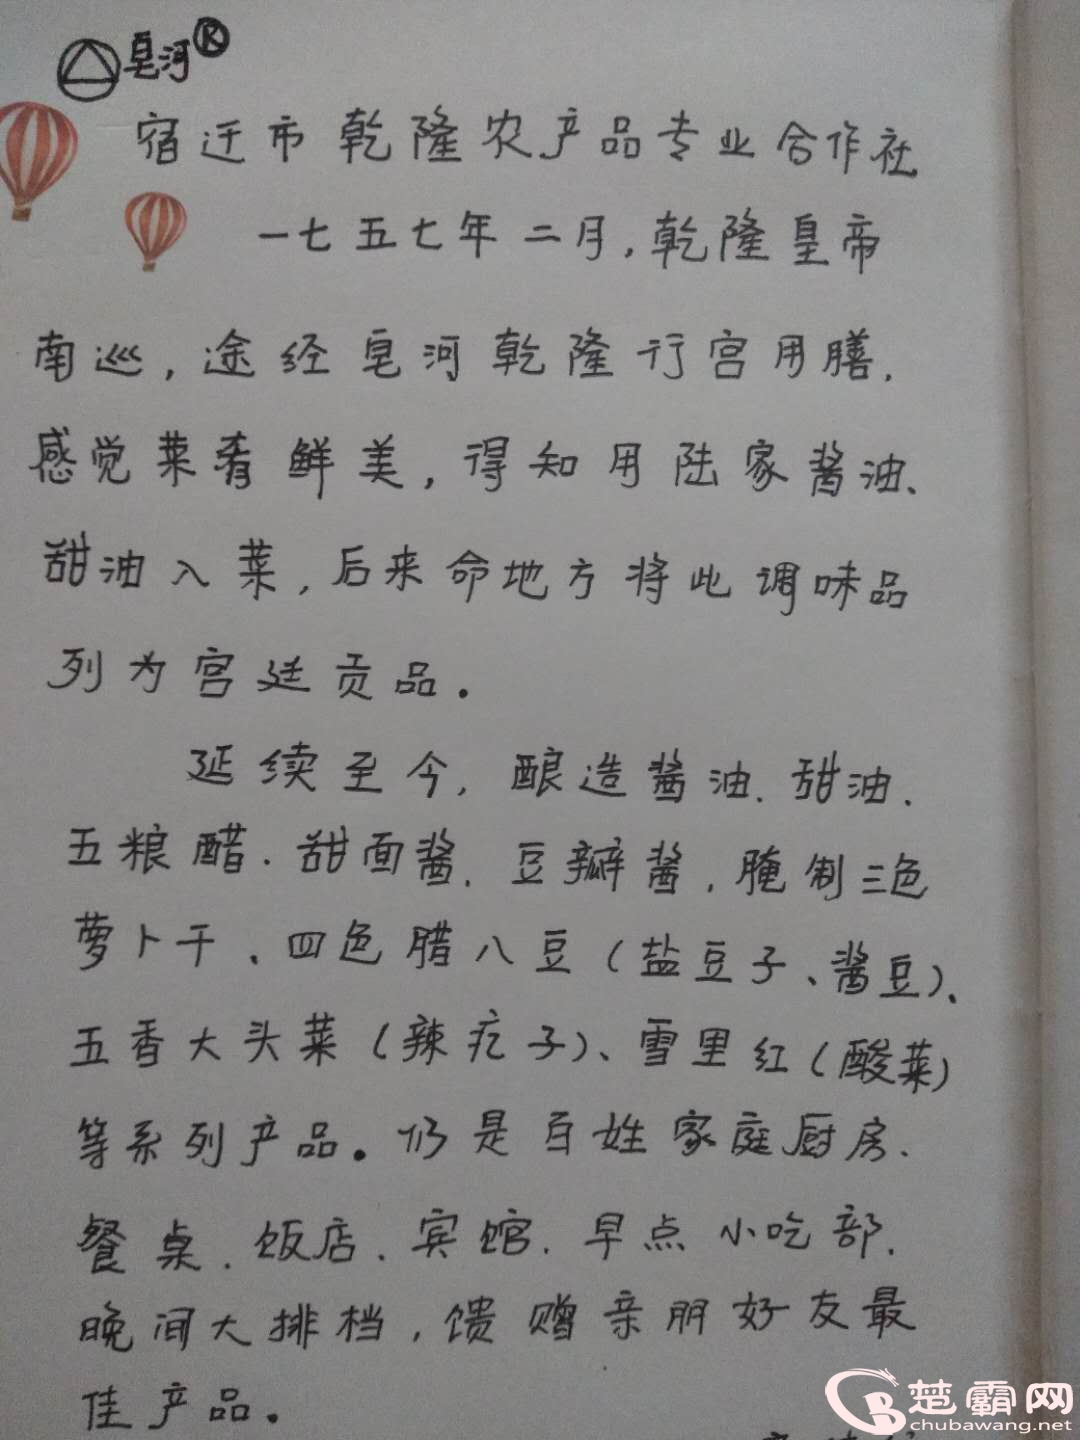 皂河®
宿迁市乾隆农产品专业合作社
一七五七年二月,乾隆皇帝
南巡,途经皂河乾隆行宫用膳,
感觉菜肴鲜美,得知用陆家酱油、
甜油入菜,后来命地方将此调味品
列为宫廷贡品。
延续至今,酿造酱油、甜油、
五粮醋、甜面酱、豆瓣酱,腌制三色
萝卜干、四色腊八豆(盐豆子、酱豆)、
五香大头菜(辣疙子)、雪里红(酸菜)
等系列产品。仍是百姓家庭厨房、
餐桌、饭店、宾馆、早点小吃部、
晚间大排档,馈赠亲朋好友最
佳产品。
楚霸网
chubawang.net